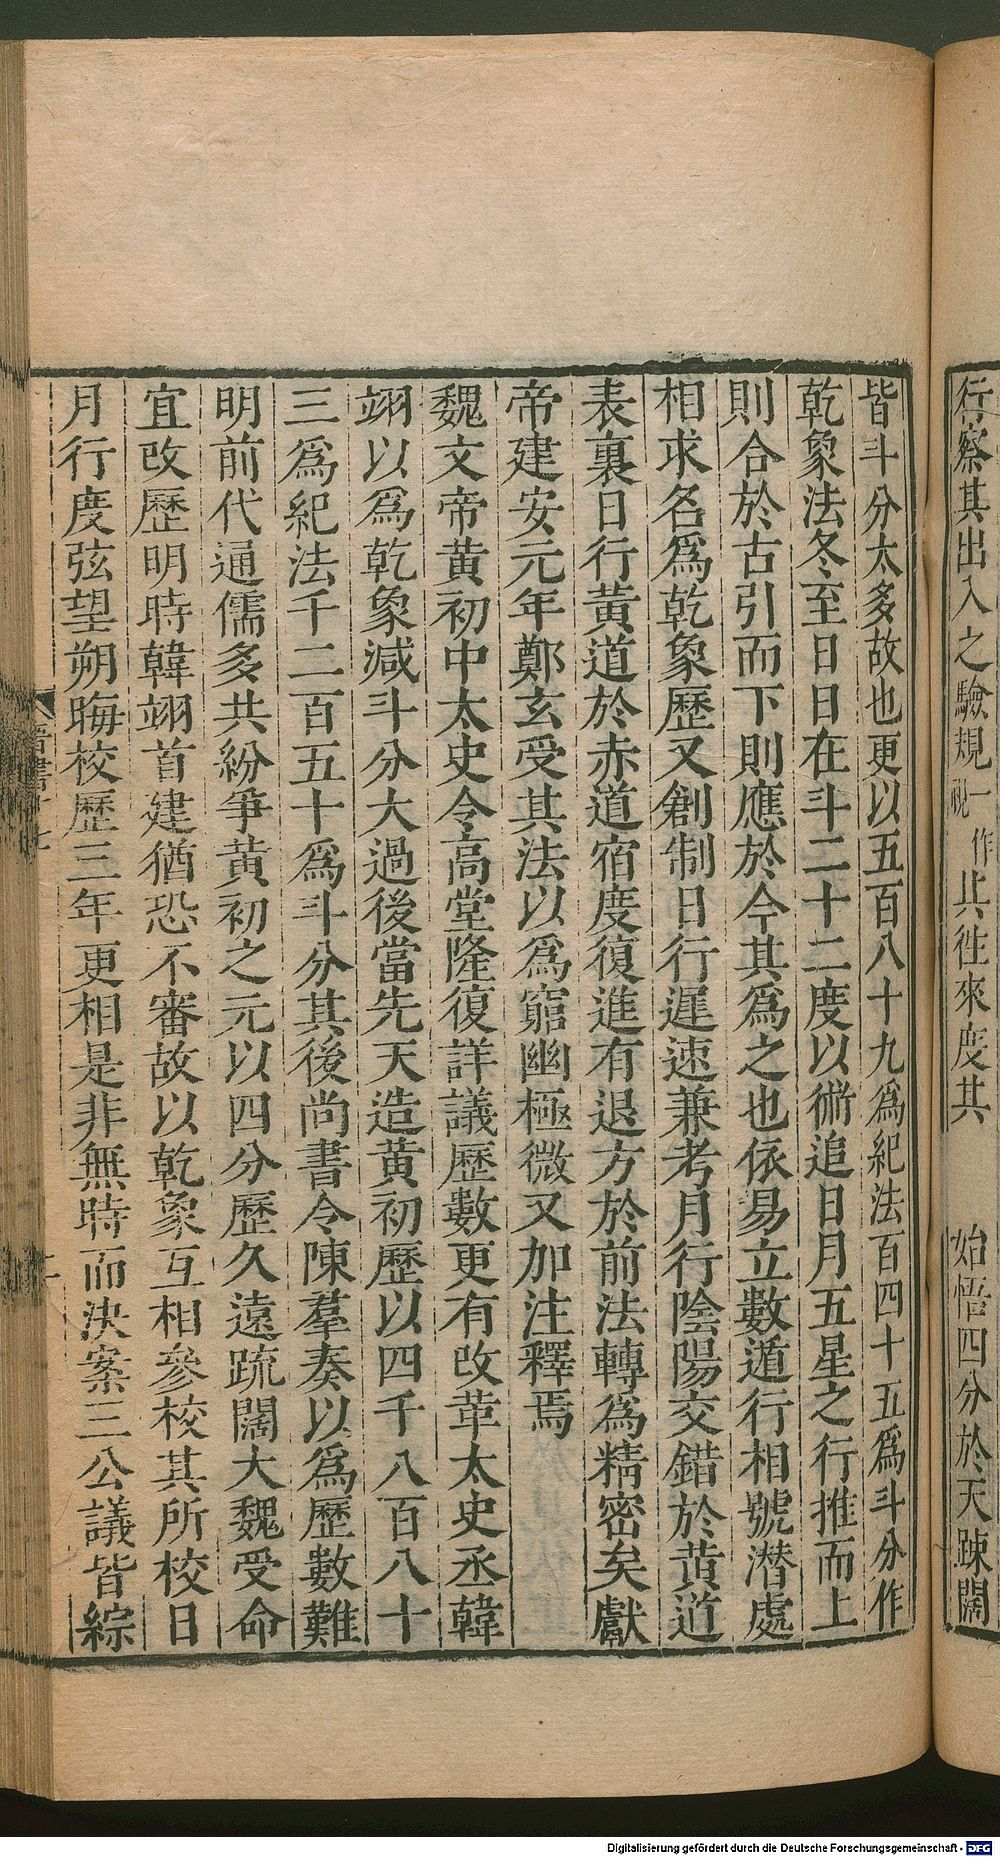 行察其出入之驗規一作視共往來度其　始悟四分於天踈闊
皆斗分太多故也更以五百八十九爲紀法百四十五爲斗分作
乾象法冬至日日在斗二十二度以術追日月五星之行推而上
則合於古引而下則應於今其爲之也依易立數遁行相號潜處
相求名爲乾象歷又創制日行遲速兼考月行陰陽交錯於黄道
表裏日行黄道於赤道宿度復進有退方於前法轉爲精密矣獻
帝建安元年鄭玄受其法以爲窮幽極微又加注釋焉
魏文帝黄初中太史令高堂隆復詳議歷數更有改革太史丞韓
翊以爲乾象減斗分大過後當先天造黄初歷以四千八百八十
三爲紀法千二百五十爲斗分其後尚書令陳羣奏以爲歷數難
明前代通儒多共紛爭黄初之元以四分歷久遠疏闊大魏受命
宜改歷明時韓翊首建猶恐不審故以乾象互相參校其所校日
月行度弦望朔晦校歷三年更相是非無時而決案三公議皆綜
晉書十七
Digitalisierung gefördert durch die Deutsche Forschungsgemeinschaft - DFG